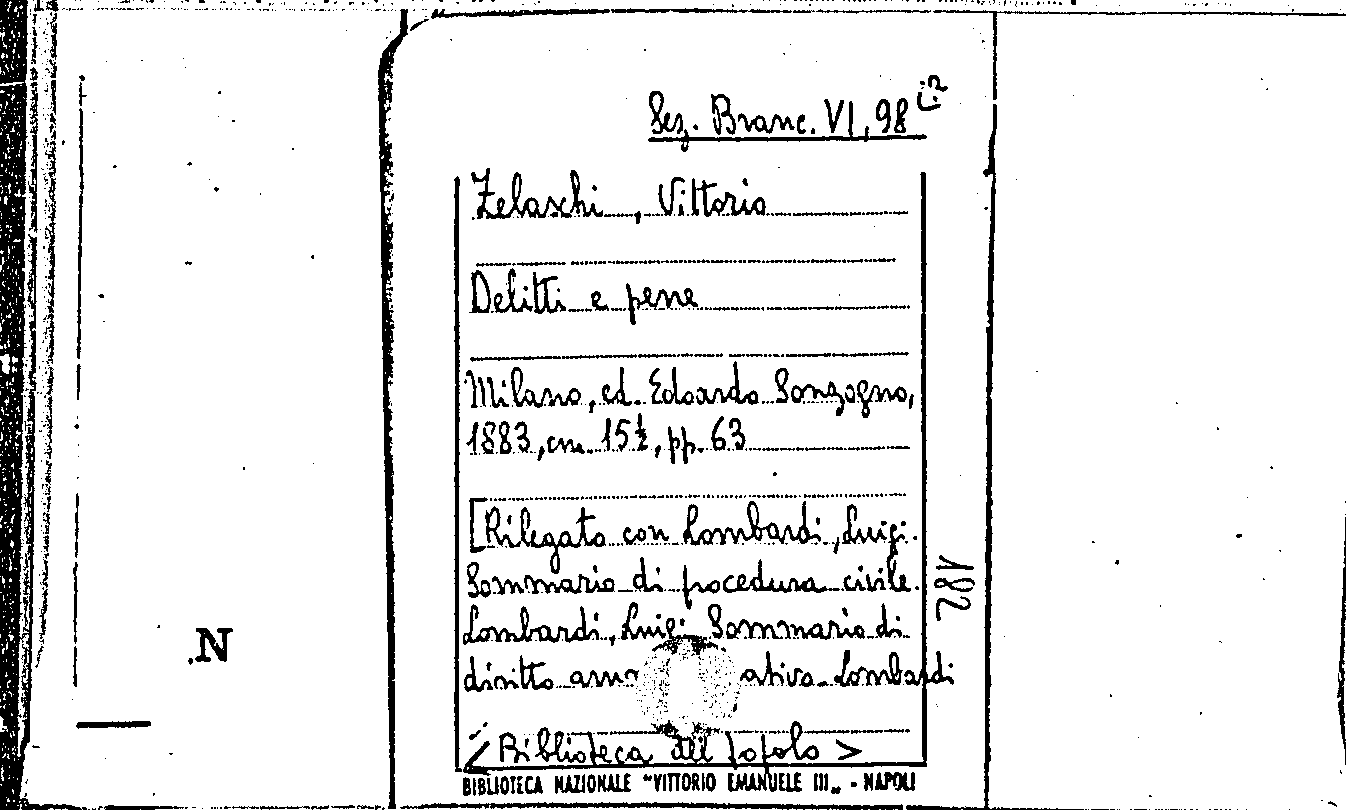 Sez. Branc. VI, 98
Zelaschi, Vittorio
Delitti e pene
Milano, ed. Edoardo Sonzogno,
1883, cm. 15½, pp. 63
[Rilegato con Lombardi, Luigi.
Sommario di procedura civile.
Lombardi, Luigi Sommario di
diritto Lombardi
< Biblioteca del popolo >
BIBLIOTECA NAZIONALE "VITTORIO EMANUELE III„ - NAPOLI
182
.N